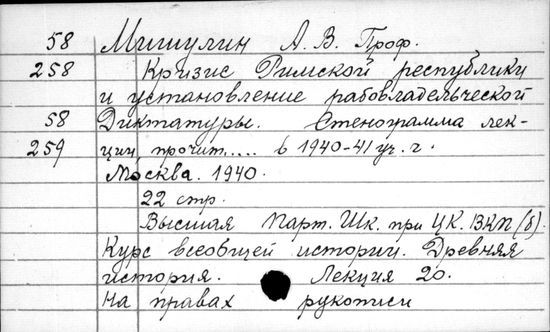 58 Мишулин А. В. Проф.
258 Кризис Римской республики
и установление рабовладельческой
58 Диктатуры. Стенограмма лек-
259 ции, прочит.... в 1940-41 уч. г.
Москва. 1940.
22 стр.
Высшая Парт. Шк. при ЦК. ВКП(б).
Курс всеобщей истории. Древняя
история. Лекция 20.
На правах рукописи